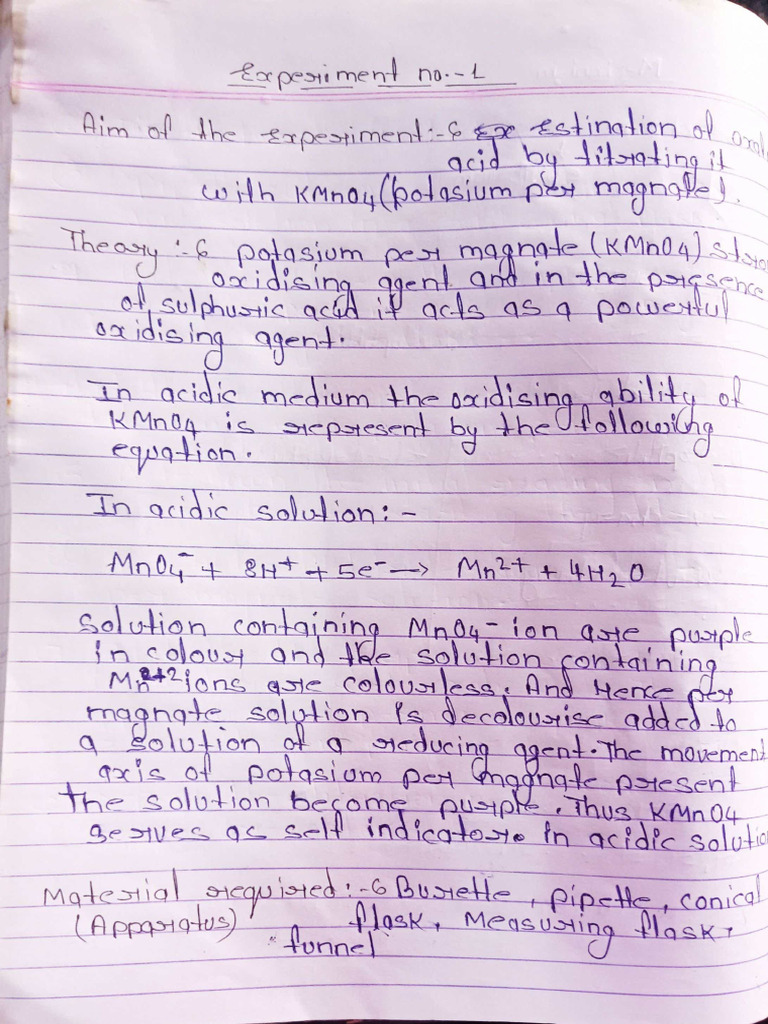 Experiment no.-1
Aim of the Experiment:-6 Ex Estination of oxali
acid by titrating it
with KMnO4 (potasium per magnate).
Theory :-6 potasium per magnate (KMnO4) stro
oxidising agent and in the presence
of sulphuric acid it acts as a powerful
oxidising agent.
In acidic medium the oxidising ability of
KMnO4 is represent by the following
equation.
In acidic solution:-
MnO4⁻ + 8H⁺ + 5e⁻ → Mn²⁺ + 4H₂O
Solution containing MnO4⁻ ion are purple
in colour and the solution containing
Mn²⁺² ions are colourless. And Hence per
magnate solution is decolourise added to
a solution of a reducing agent. The movement
axis of potasium per magnate present
the solution become purple. Thus KMnO4
serves as self indicator. in acidic solutio
Material required:-6 Burette, pipette, conical
(Apparatus) flask, Measuring flask,
funnel